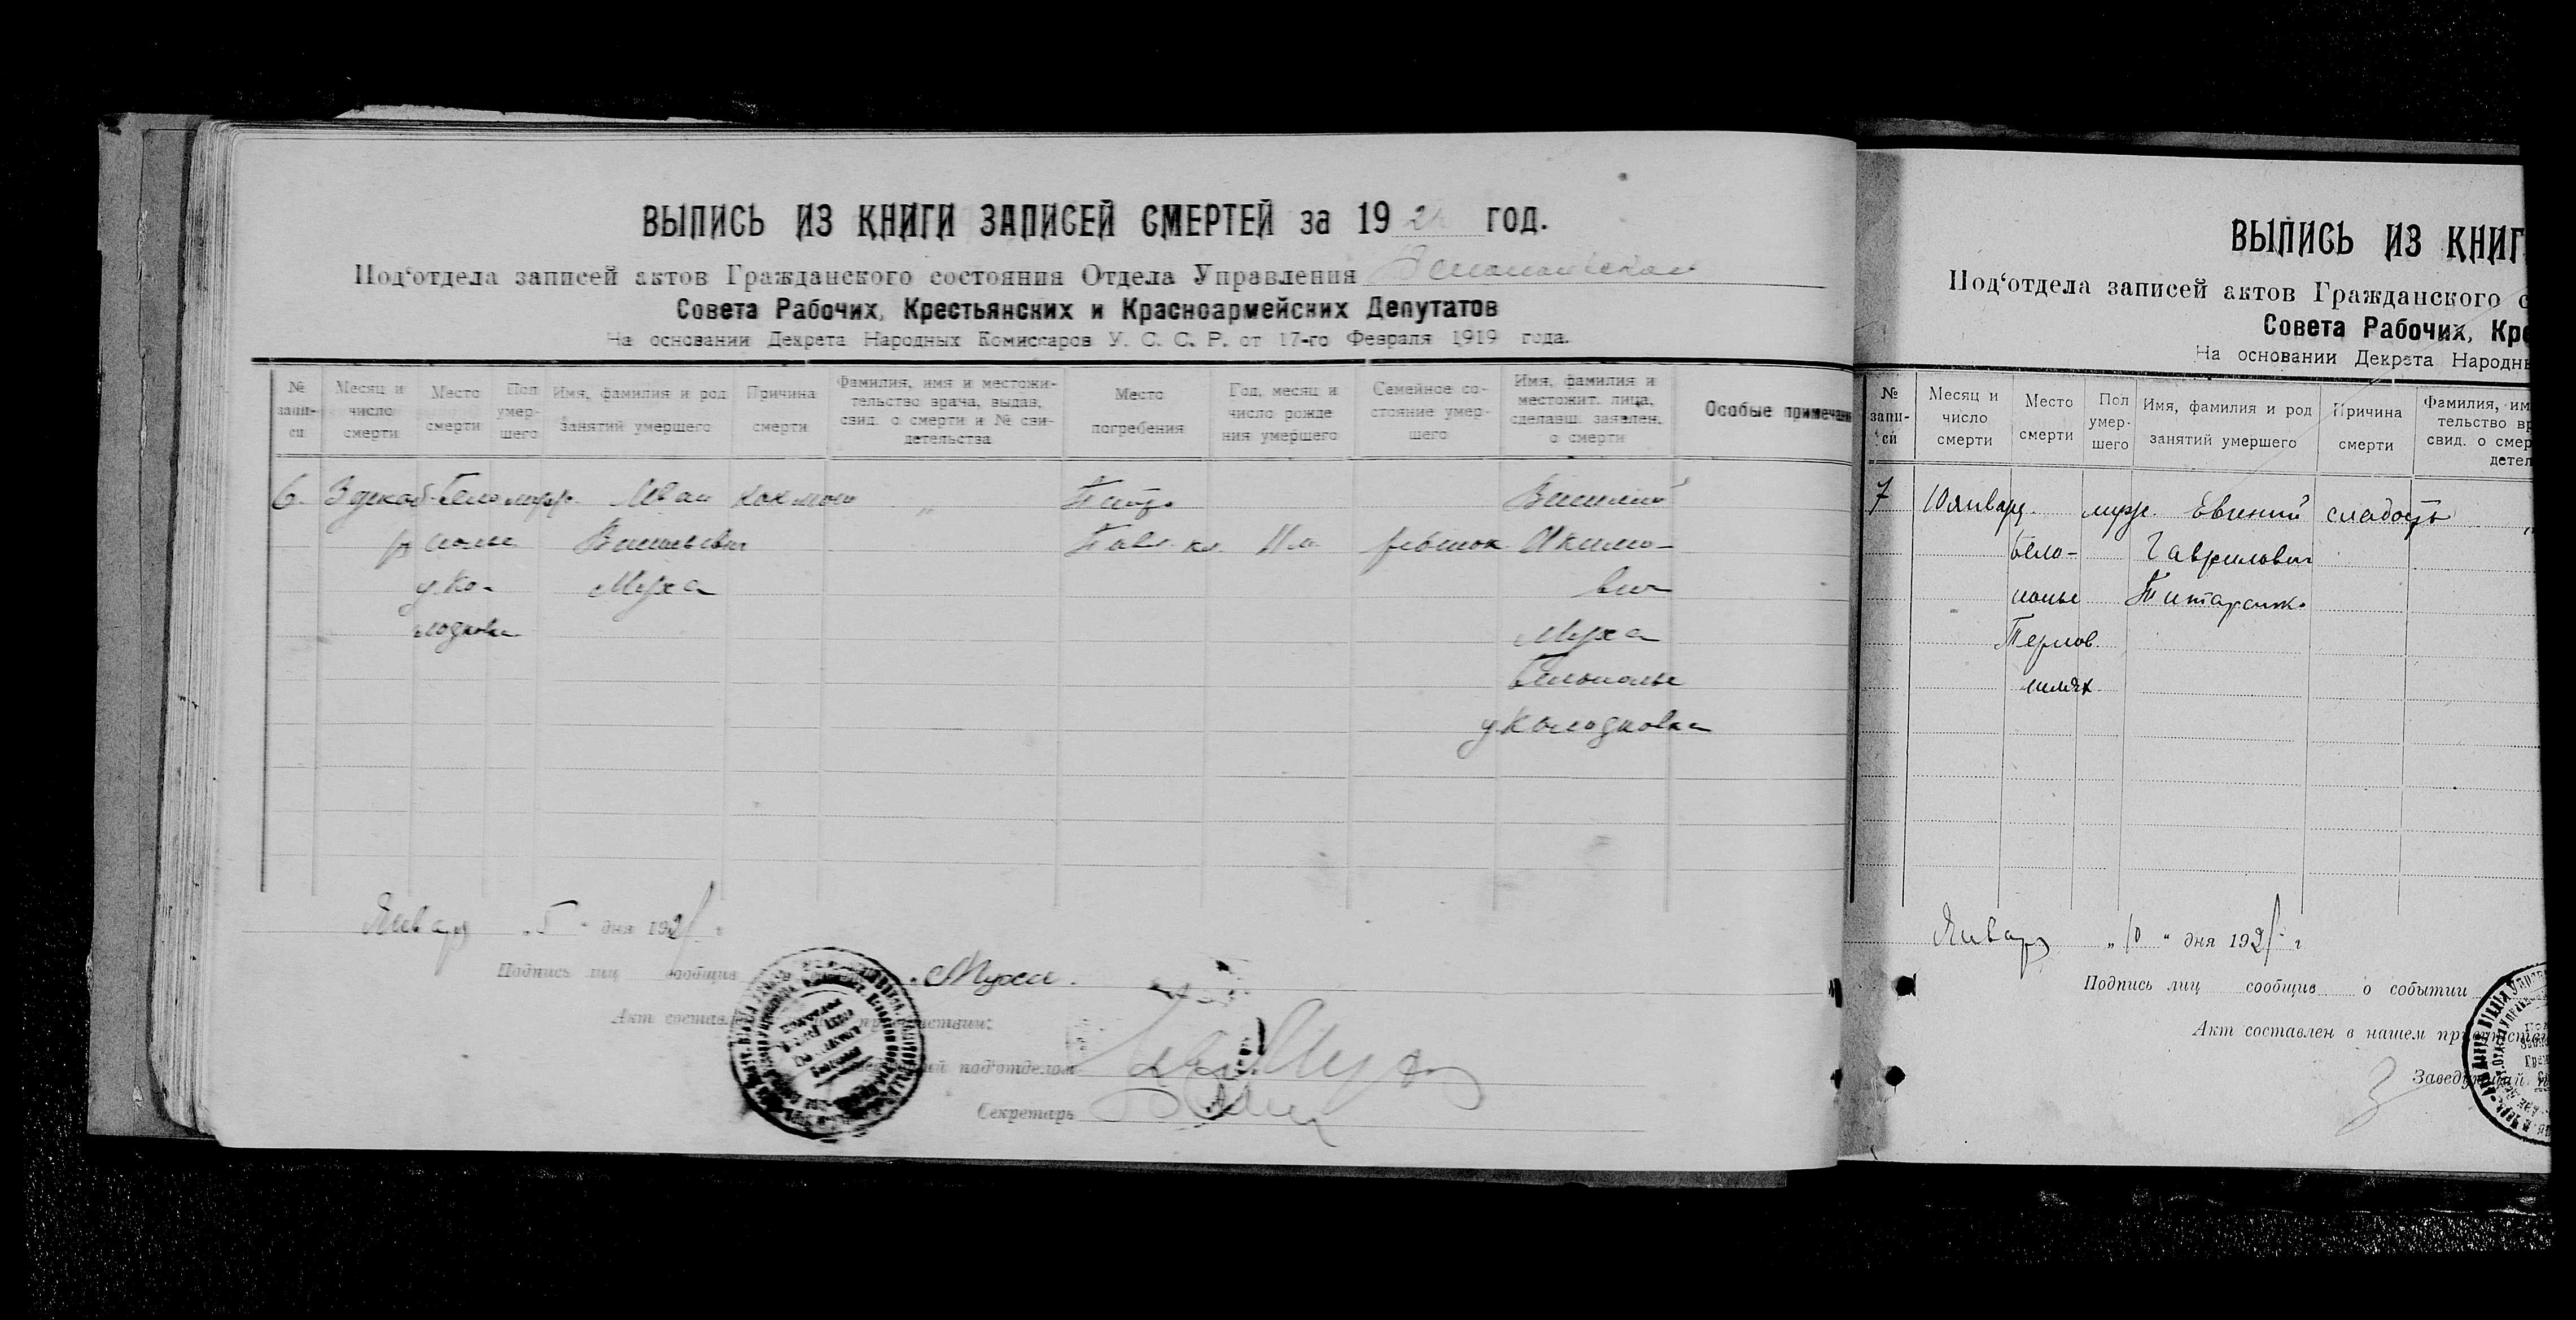 ВЫПИСЬ ИЗ КНИГИ ЗАПИСЕЙ СМЕРТЕЙ за 192 год.
Под‘отдела записей актов Гражданского состояния Отдела Управления
Совета Рабочих, Крестьянских и Красноармейских Депутатов
На основании Декрета Народных Комиссаров У. С. С. Р. от 17-го Февраля 1919 года.
№ запи-си
Месяц и число смерти
Место смерти
Пол умер-шего
Имя, фамилия и род занятий умершего
Причина смерти
Фамилия, имя и местожи-тельство врача, выдав. свид. о смерти и № сви-детельства
Место погребения
Год, месяц и число рожде ния умершего
Семейное со-стояние умер-шего
Имя, фамилия и местожит. лица, сделавш. заявлен. о смерти
Особые примечани
6. 3 декаб- Бело муж. Иван коклюш „ Петр. Василий
р полье Васильевич Павл. кл. 11 м. ребенок Акимо-
у. Ко- Муха вич
лодковка Муха
Белополье
у. Колодковка
Январ „5“ дня 1921 г
Подпись лиц сообщив Муха.
Акт состав
под‘отделом
Секретарь
ВЫПИСЬ ИЗ КНИГ
Под‘отдела записей актов Гражданского с
Совета Рабочих, Кре
На основании Декрета Народн
№ запи-си
Месяц и число смерти
Место смерти
Пол умер-шего
Имя, фамилия и род занятий умершего
Причина смерти
Фамилия, им тельство вр свид. о смер детел
7 10 январ. муж. Евгений слабость „
Бело- Гаврилович
полье Титаренк.
Терлов.
шлях
Январ „10“ дня 1921 г
Подпись лиц сообщив о событии
Акт составлен в нашем присутств
Заведующий